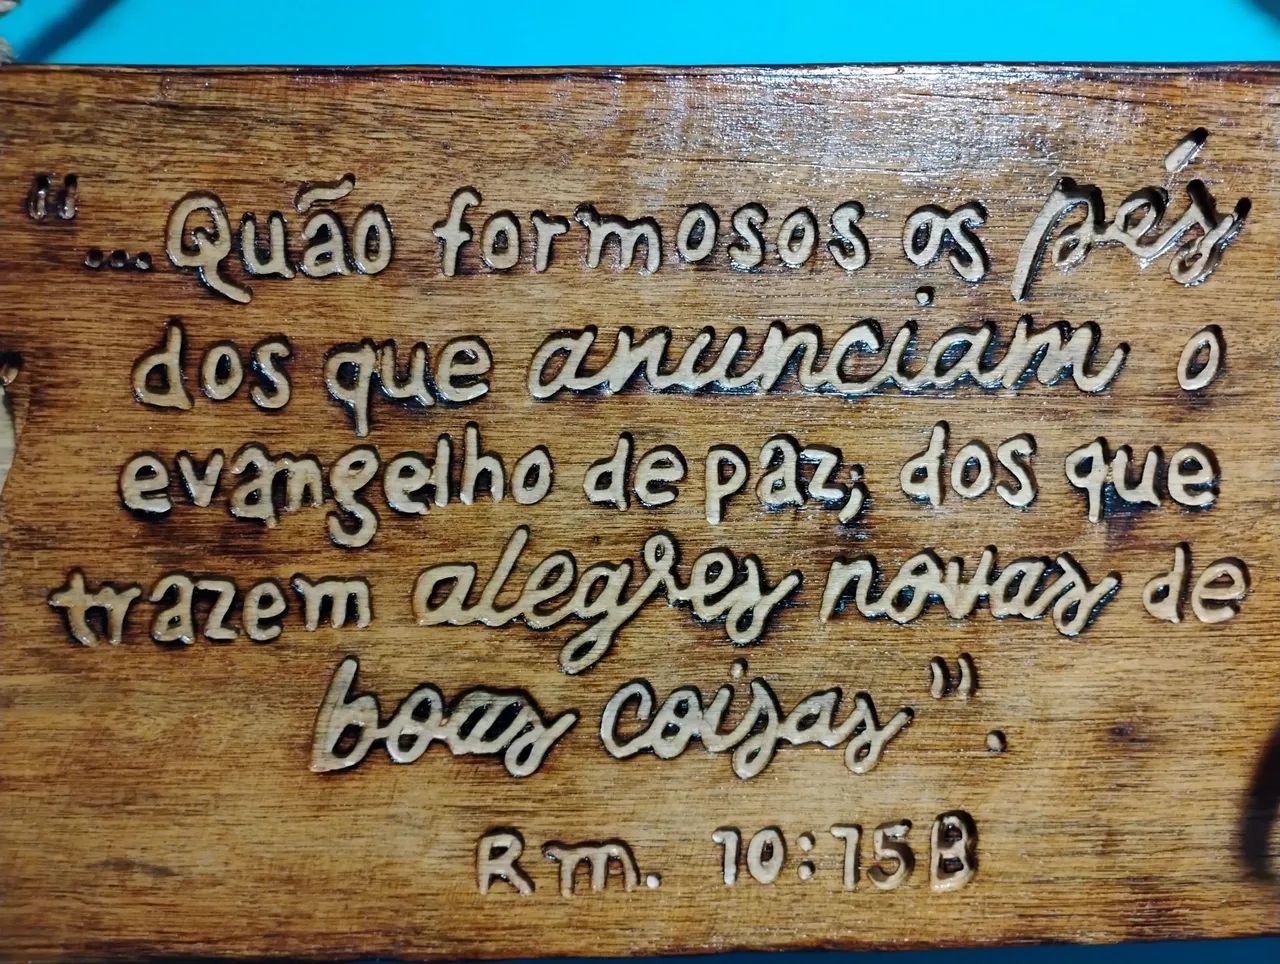 "...Quão formosos os pés
dos que anunciam o
evangelho de paz; dos que
trazem alegres novas de
boas coisas".
Rm. 10:15B